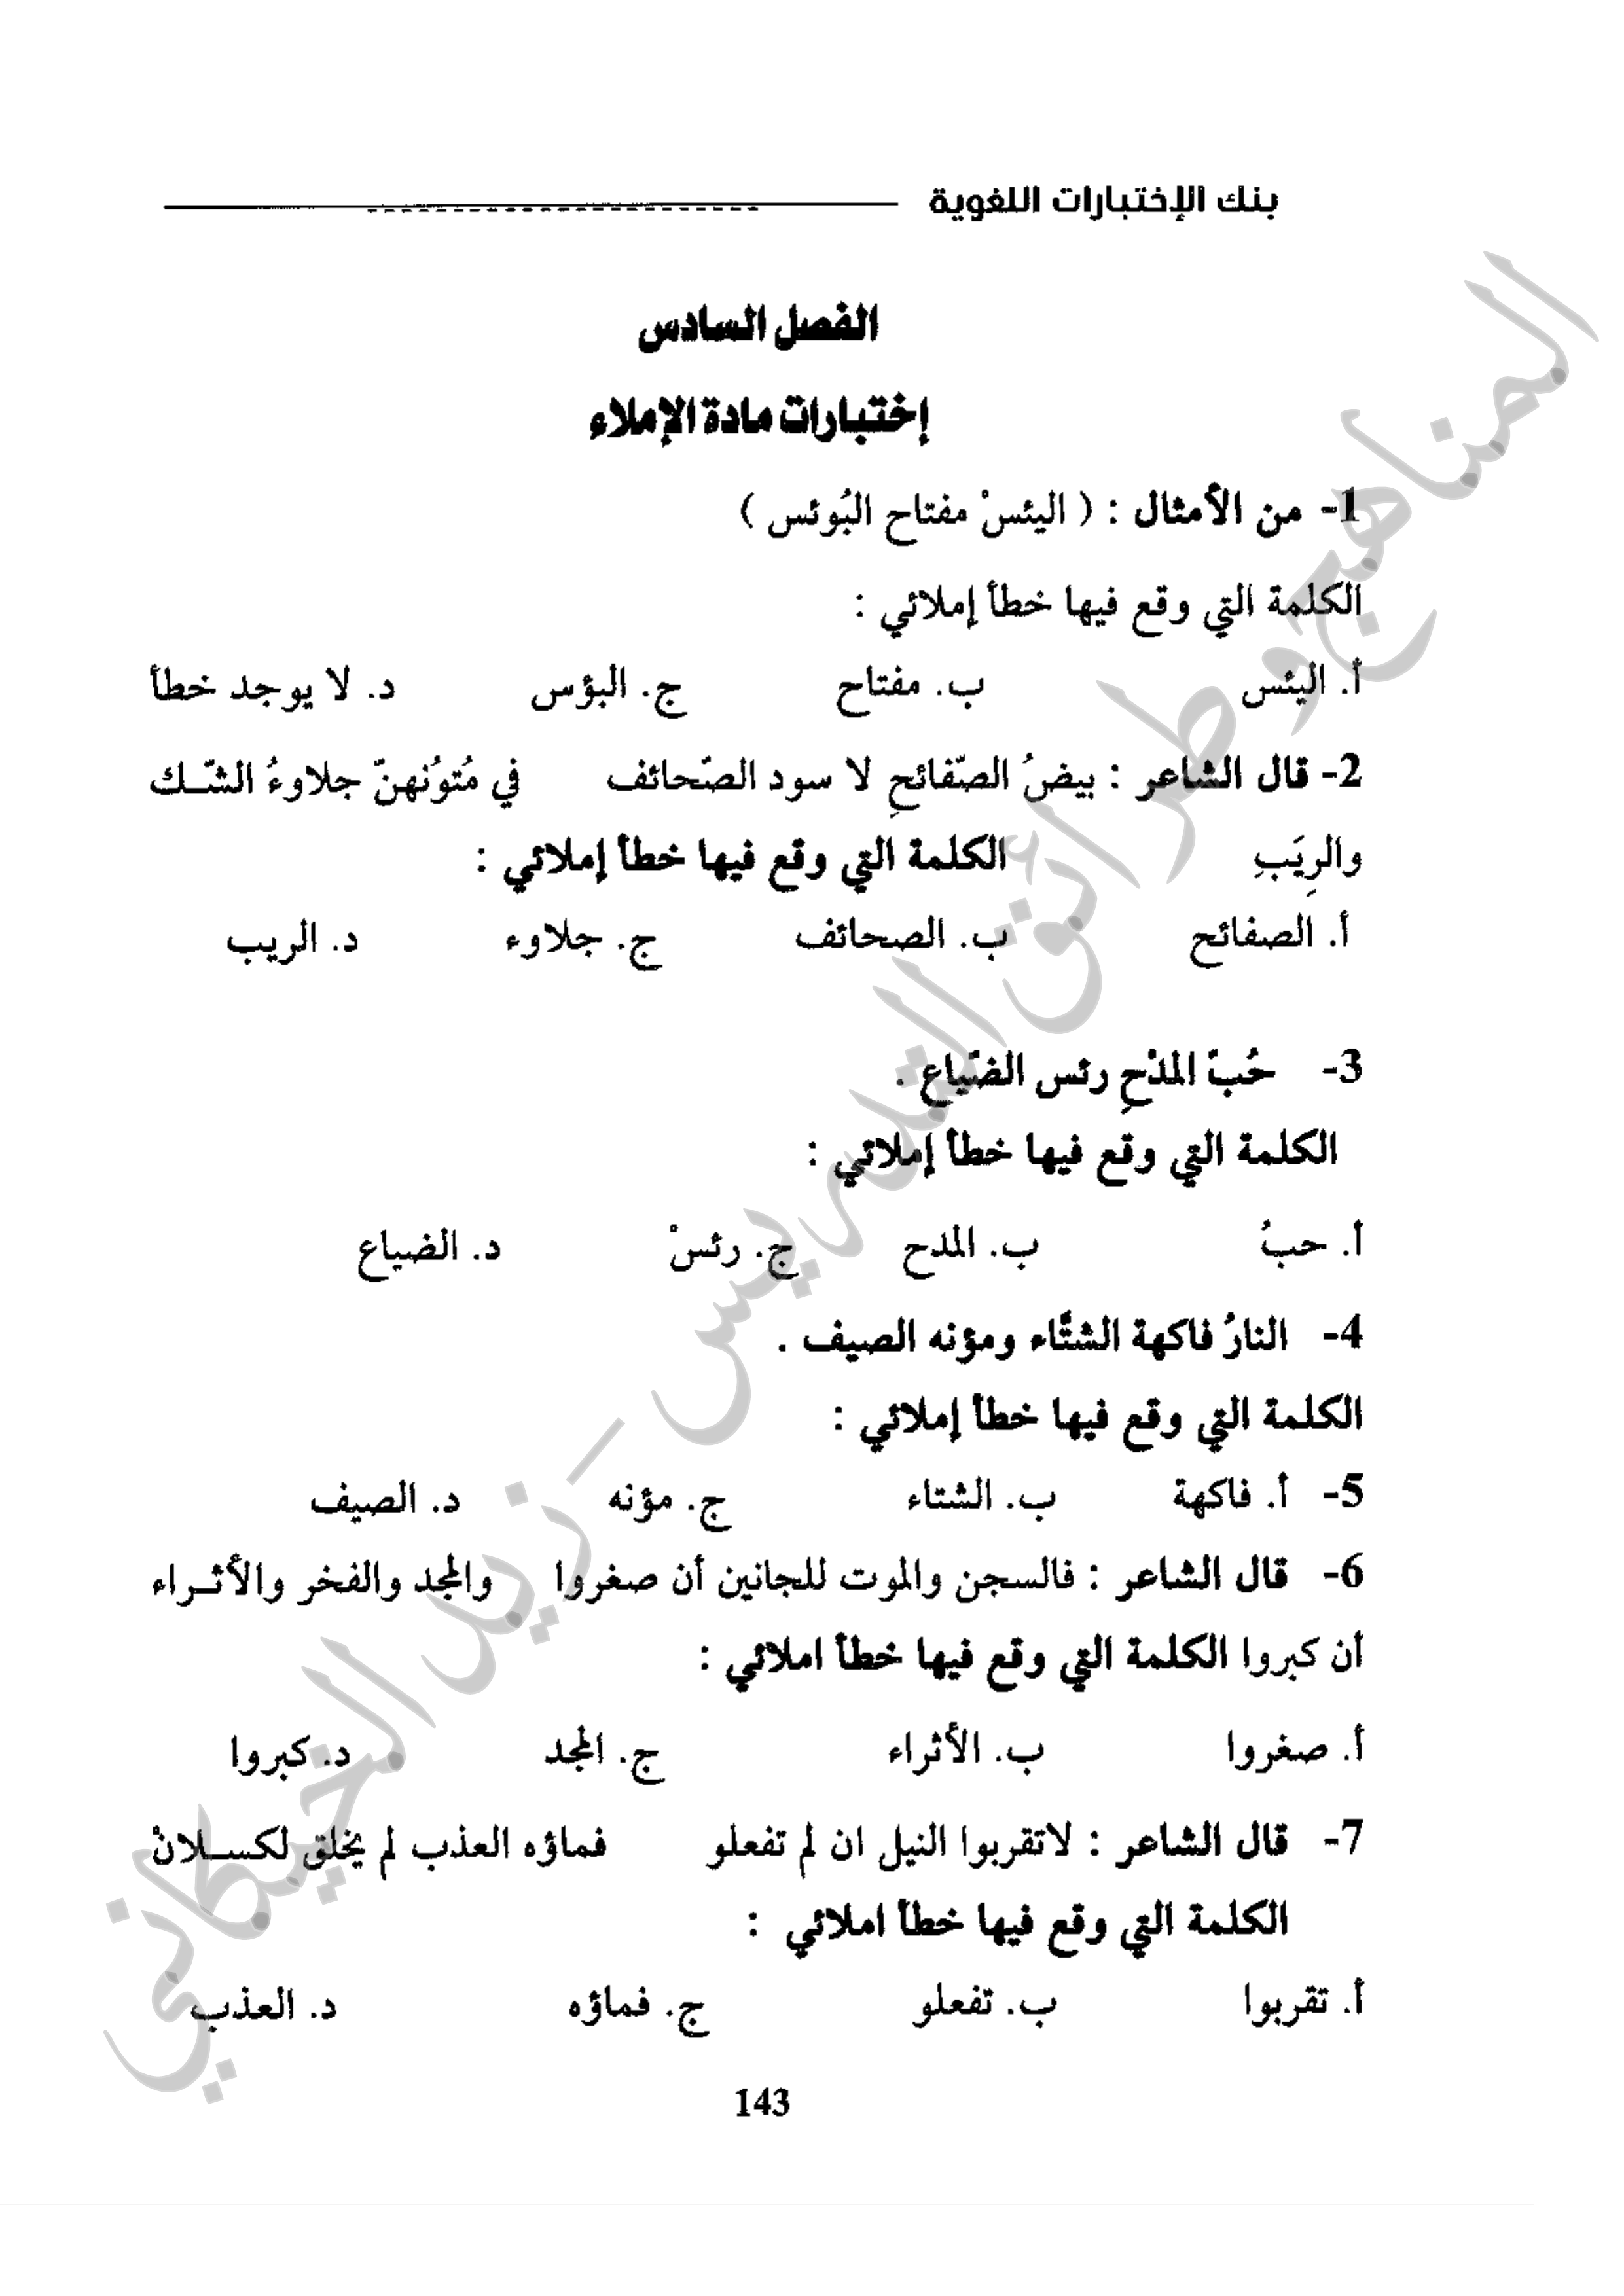 بنك الإختبارات اللغوية
الفصل السادس
إختبارات مادة الإملاء
1- من الأمثال : ( اليئسْ مفتاح البُوئس )
الكلمة التي وقع فيها خطأ إملائي :
أ. اليئس ب. مفتاح ج. البؤس د. لا يوجد خطأ
2- قال الشاعر : بيضُ الصّفائحِ لا سود الصّحائف في مُتوُنهنّ جلاوءُ الشّـك
والرِيَبِ الكلمة التي وقع فيها خطأ إملائي :
أ. الصفائح ب. الصحائف ج. جلاوء د. الريب
3- حُبّ المدْحِ رئس الضّياع .
الكلمة التي وقع فيها خطأ إملائي :
أ. حبُ ب. المدح ج. رئسْ د. الضياع
4- النارُ فاكهة الشتَّاء ومؤنه الصيف .
الكلمة التي وقع فيها خطأ إملائي :
5- أ. فاكهة ب. الشتاء ج. مؤنه د. الصيف
6- قال الشاعر : فالسجن والموت للجانين أن صغروا والمجد والفخر والأثـراء
أن كبروا الكلمة التي وقع فيها خطأ املائي :
أ. صغروا ب. الأثراء ج. المجد د. كبروا
7- قال الشاعر : لاتقربوا النيل ان لم تفعلو فماؤه العذب لم يخلق لكسـلانْ
الكلمة التي وقع فيها خطأ املائي :
أ. تقربوا ب. تفعلو ج. فماؤه د. العذب
143
المناهج وطرائق التدريس - زيد الخيكاني